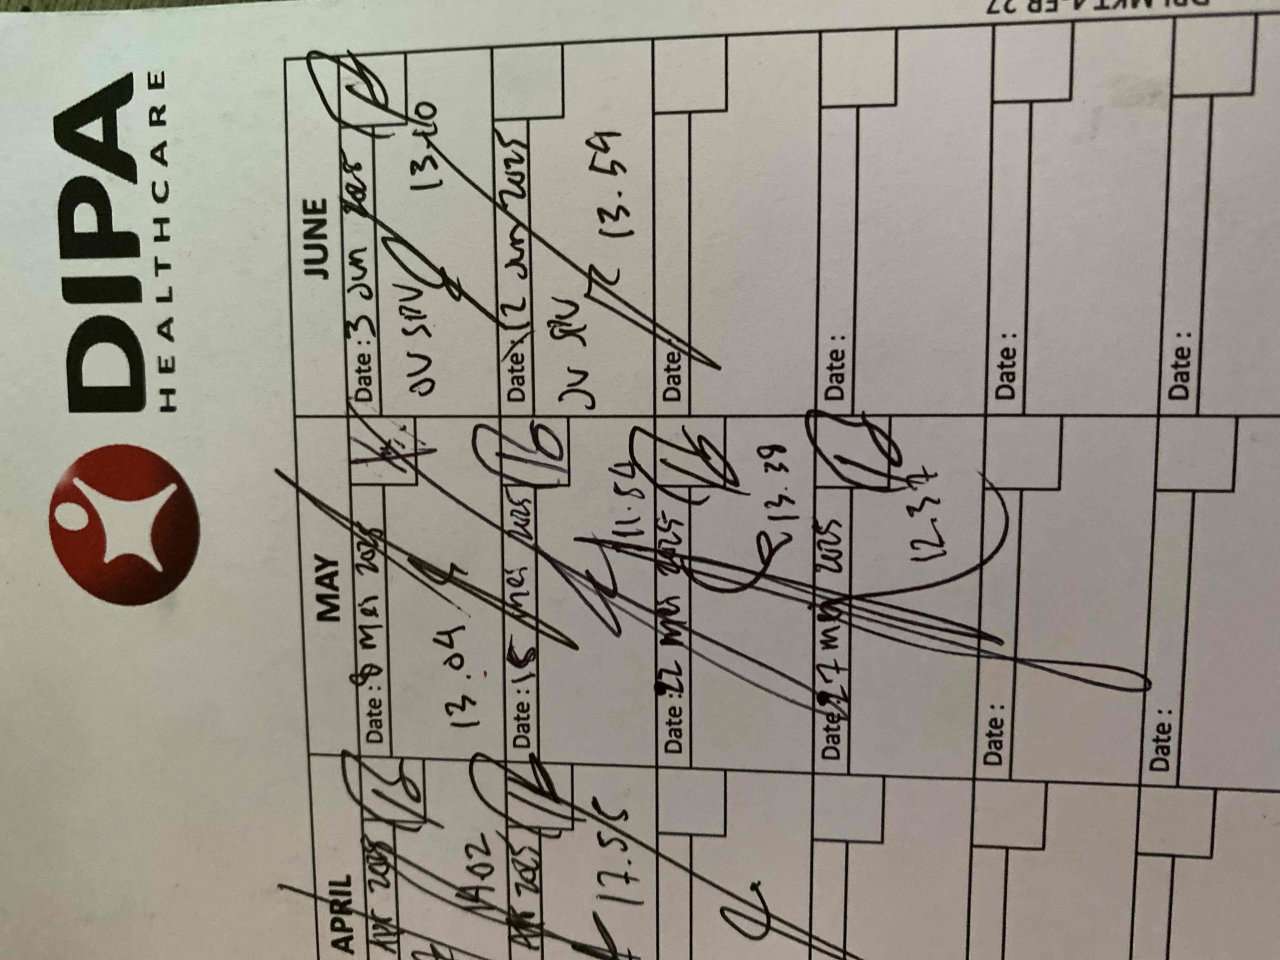 DIPA
HEALTHCARE
APRIL
Apr 2025
1402
Apr 2025
17.55
MAY
Date : 8 mei 2025
13.04
Date : 15 mei 2025
11.54
Date : 22 mei 2025
13.38
Date : 27 mei 2025
12.37
Date :
Date :
JUNE
Date : 3 Jun 2025
JV SPV
13.10
Date : 12 Jun 2025
JV SPV
13.59
Date :
Date :
Date :
Date :